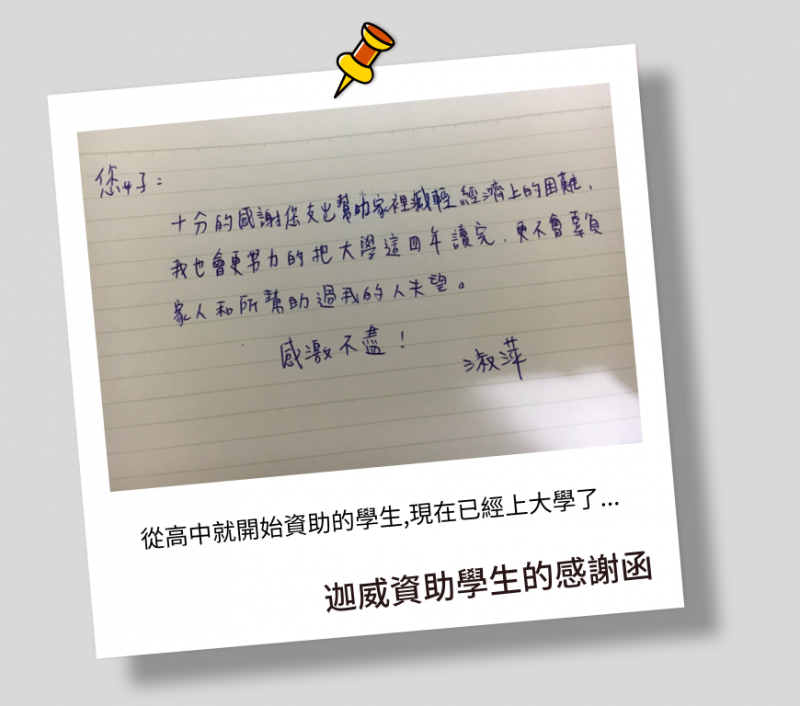 您好：
十分的感謝您支出幫助家裡減輕經濟上的困難，
我也會更努力的把大學這四年讀完，更不會辜負
家人和所幫助過我的人失望。
感激不盡！
淑萍
從高中就開始資助的學生,現在已經上大學了...
迦威資助學生的感謝函